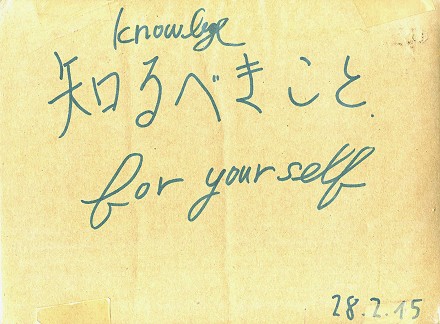 knowlege
知るべきこと
for yourself
28.2.15